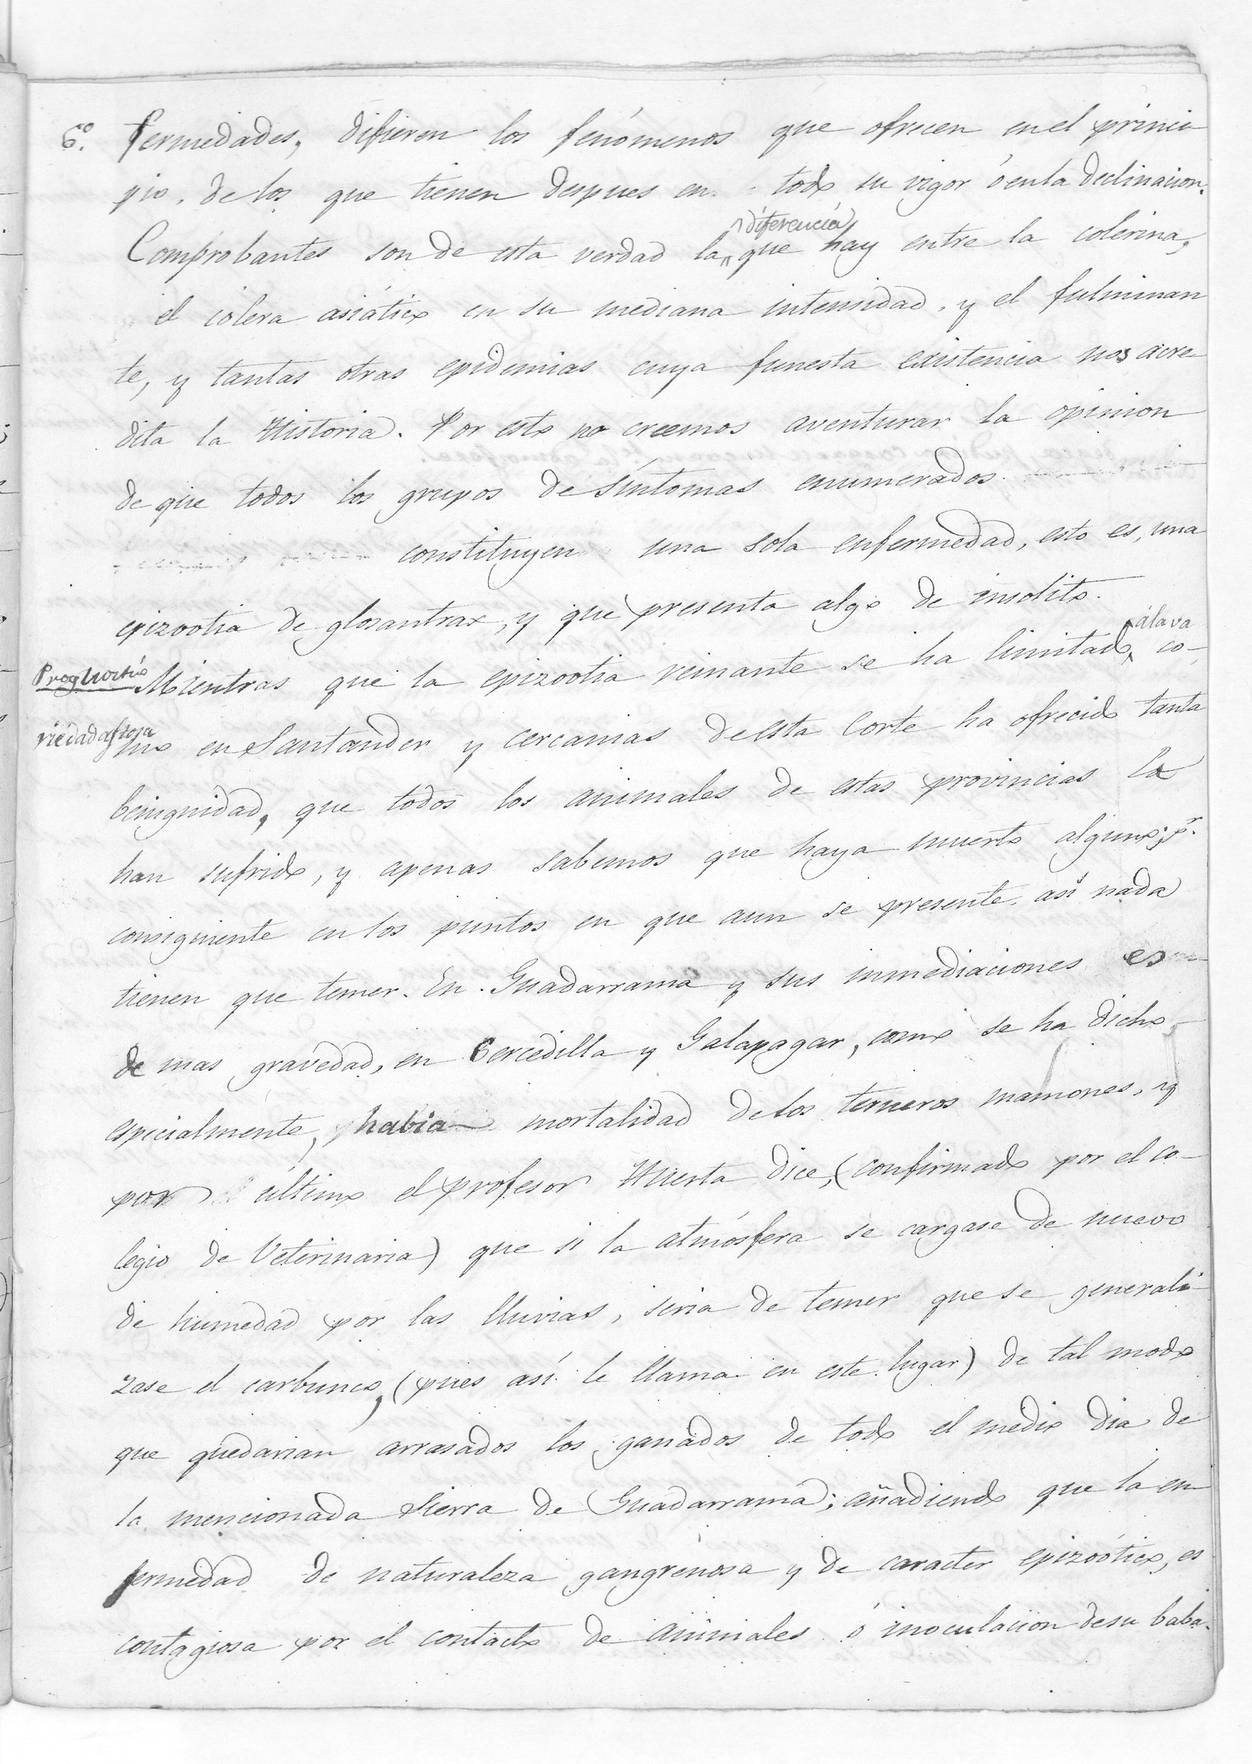 6º. fermedades, difieren los fenómenos que ofrecen en el princi
pio, de los que tienen despues en todo su vigor ó en la declinacion.
Comprobantes son de esta verdad la diferencia que hay entre la colerina,
el colera asiático en su mediana intensidad, y el fulminan
te, y tantas otras epidemias cuya funesta existencia nos acre
dita la Historia. Por esto no creemos aventurar la opinion
de que todos los grupos de síntomas enumerados
constituyen una sola enfermedad, esto es, una
epizootia de glosantrax, y que presenta algo de insolito.
Prognostico Mientras que la epizootia reinante se ha limitado á la va
riedad aftosa, co-
mo en Santander y cercanias de esta Corte ha ofrecido tanta
benignidad, que todos los animales de estas provincias la
han sufrido, y apenas sabemos que haya muerto alguno; pr.
consiguiente en los puntos en que aun se presente así nada
tienen que temer. En Guadarrama y sus inmediaciones es
de mas gravedad, en Cercedilla y Galapagar, como se ha dicho
especialmente, habia mortalidad de los terneros mamones, y
por último el profesor Huerta dice, (confirmado por el co-
legio de Veterinaria) que si la atmósfera se cargase de nuevo
de humedad por las lluvias, seria de temer que se generali-
zase el carbunco, (pues así le llama en este lugar) de tal modo
que quedarian arrasados los ganados de todo el medio dia de
la mencionada Sierra de Guadarrama; añadiendo que la en
fermedad de naturaleza gangrenosa y de caracter epizoótico, es
contagiosa por el contacto de animales ó inoculacion de su baba.